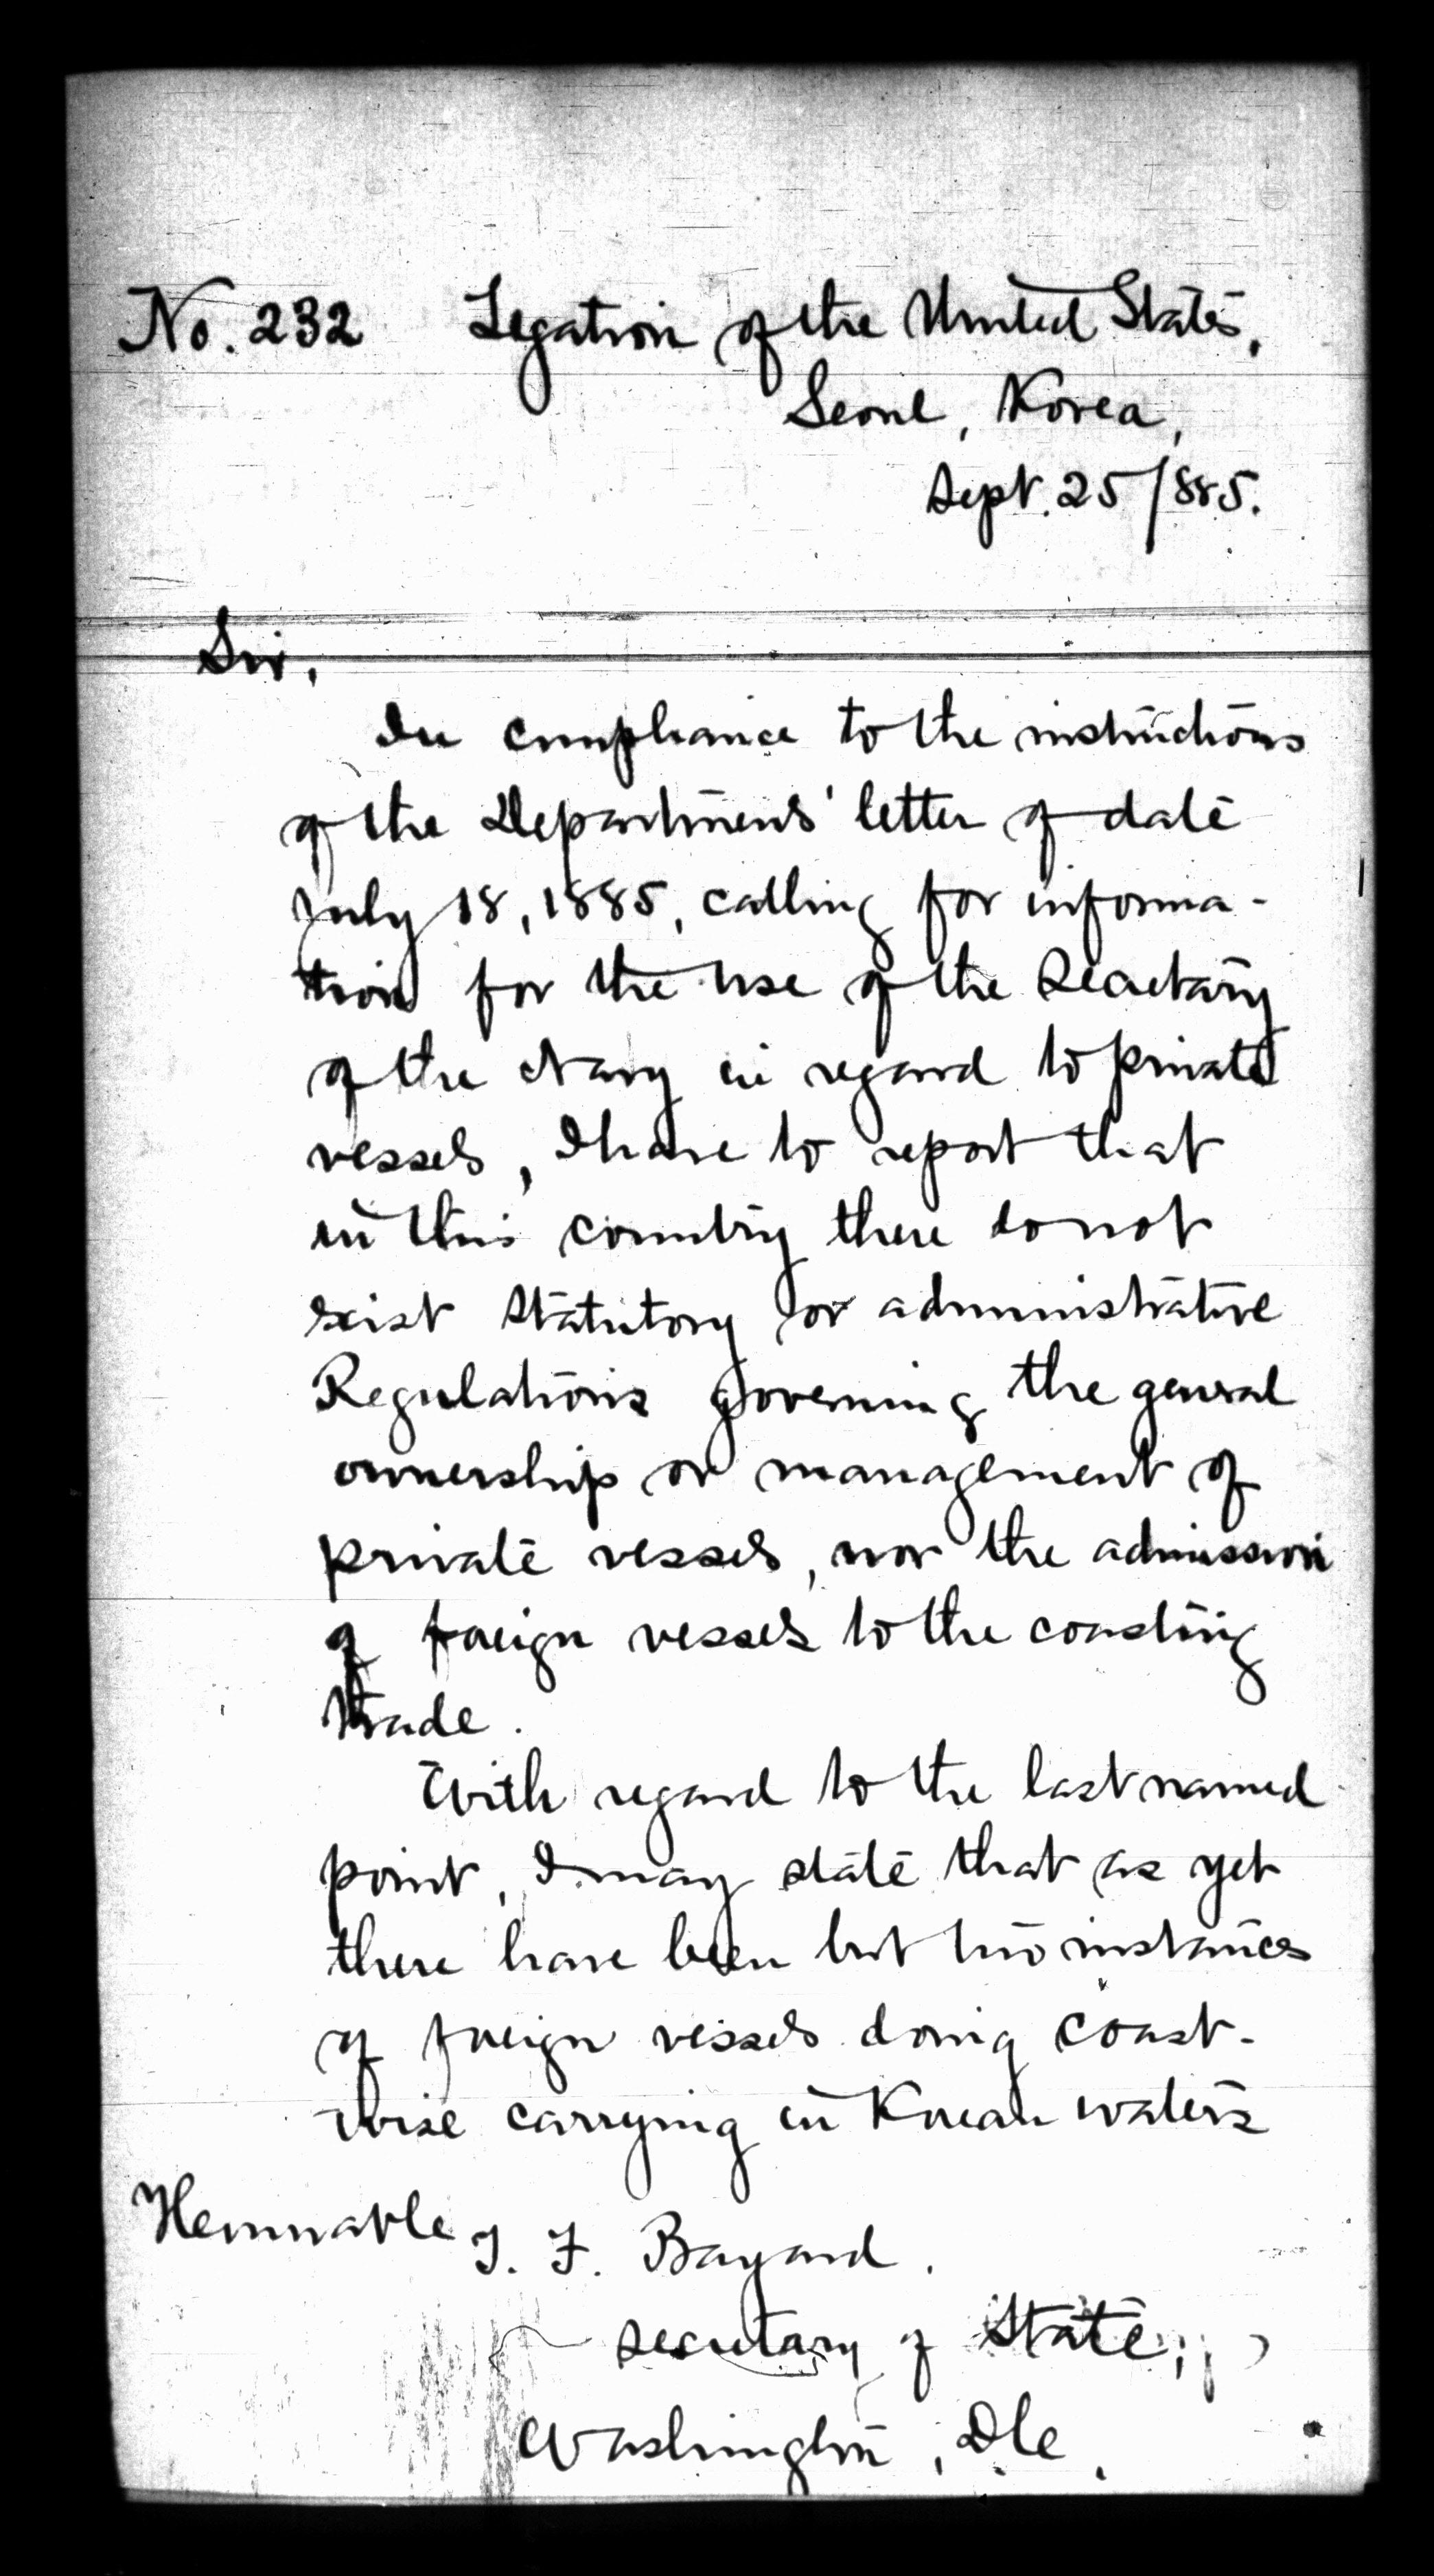 No. 232 Legation of the United States,
Seoul, Korea,
Sept. 25/885.
Sir,
In compliance to the instructions
of the Department's letter of date
July 18, 1885, calling for informa-
tion for the use of the Secretary
of the Navy in regard to private
vessels, I have to report that
in this country there do not
exist statutory or administrative
Regulations governing the general
ownership or management of
private vessels, nor the admission
of foreign vessels to the coasting
trade.
With regard to the last named
point, I may state that as yet
there have been but two instances
of foreign vessels doing coast-
wise carrying in Korean waters
Honorable
T. F. Bayard.
Secretary of State,
Washington, D.C.